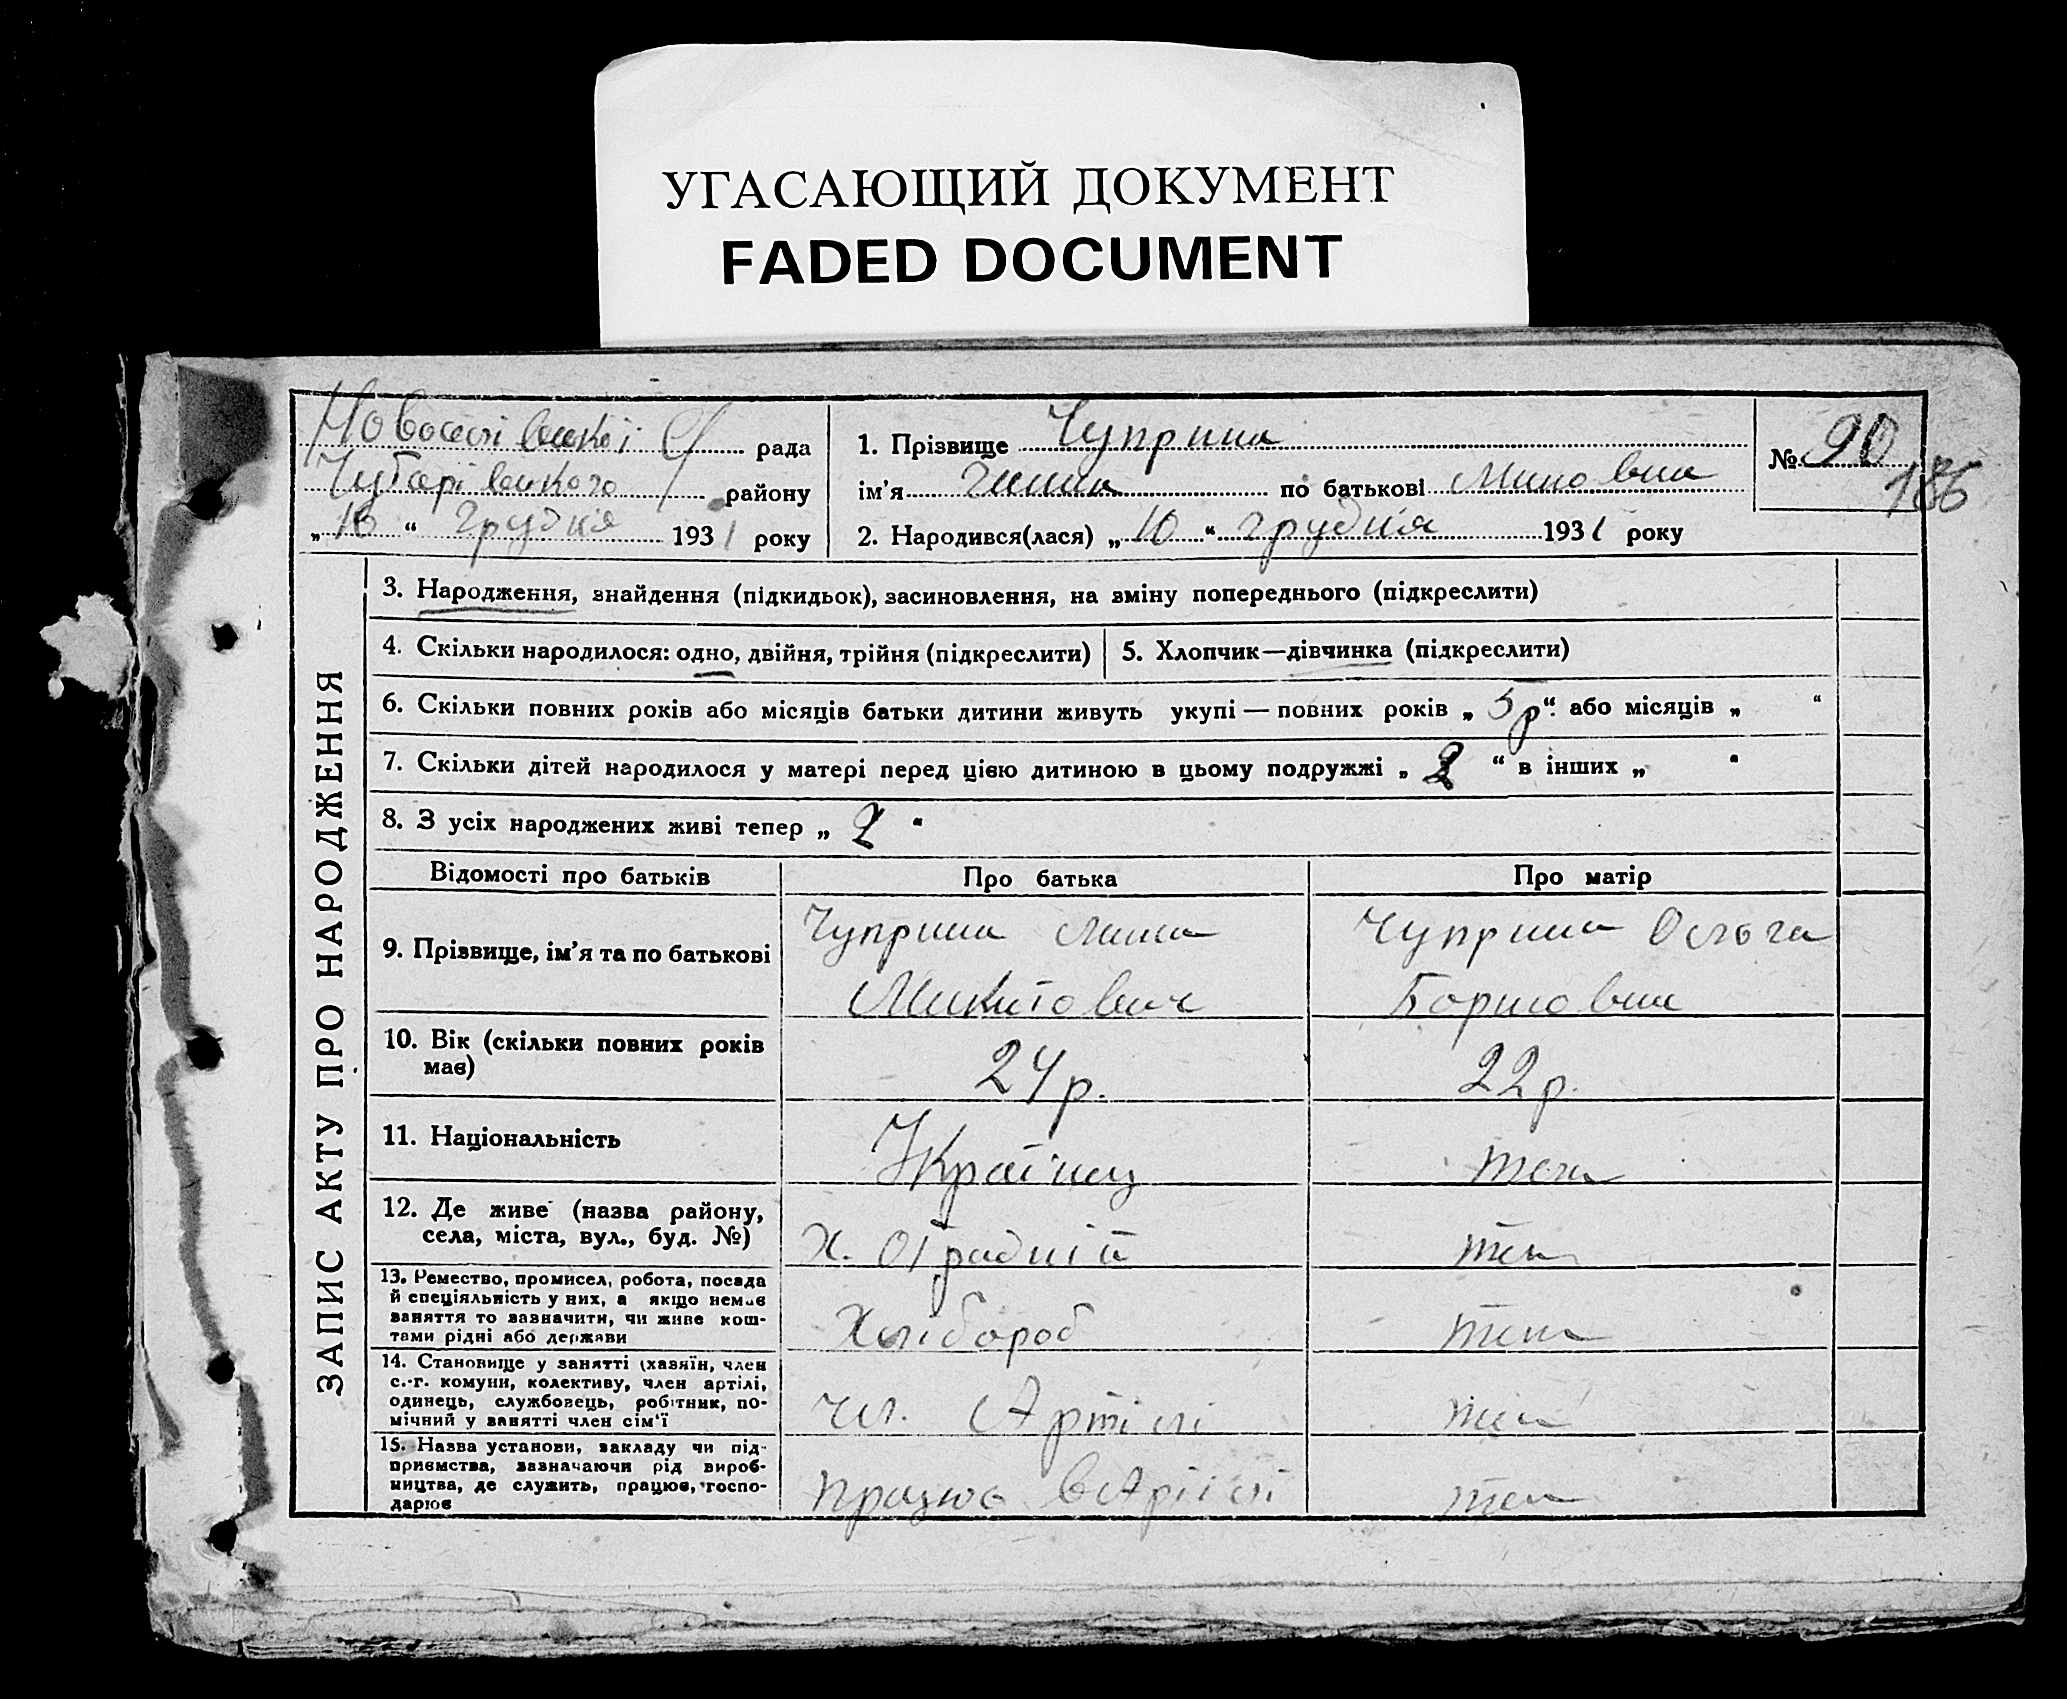 УГАСАЮЩИЙ ДОКУМЕНТ
FADED DOCUMENT
Новоселівської С/ рада
Чубарівського району
„16“ грудня 1931 року
1. Прізвище Чуприна
ім’я по батькові
2. Народився(лася) „10“ грудня 1931 року
№ 90
186
ЗАПИС АКТУ ПРО НАРОДЖЕННЯ
3. Народження, знайдення (підкидьок), засиновлення, на зміну попереднього (підкреслити)
4. Скільки народилося: одно, двійня, трійня (підкреслити)
5. Хлопчик—дівчинка (підкреслити)
6. Скільки повних років або місяців батьки дитини живуть укупі — повних років „5р“. або місяців „ “
7. Скільки дітей народилося у матері перед цією дитиною в цьому подружжі „2“ в інших „ “
8. З усіх народжених живі тепер „2“
Відомості про батьків
Про батька
Про матір
9. Прізвище, ім’я та по батькові
Чуприна
Микитович
Чуприна Ольга
Борисовна
10. Вік (скільки повних років
має)
24р.
22р.
11. Національність
Українец
теж
12. Де живе (назва району,
села, міста, вул., буд. №)
Х. Отрадній
теж
13. Ремество, промисел, робота, посада
й спеціяльність у них, а якщо немає
заняття то зазначити, чи живе кош-
тами рідні або держави
Хлібороб
теж
14. Становище у занятті (хазяїн, член
с.-г. комуни, колективу, член артілі,
одинець, службовець, робітник, по-
мічний у занятті член сім’ї
Чл. Артілі
теж
15. Назва установи, закладу чи під-
приємства, зазначаючи рід вироб-
ництва, де служить, працює, госпо-
дарює
Працює в Артілі
теж